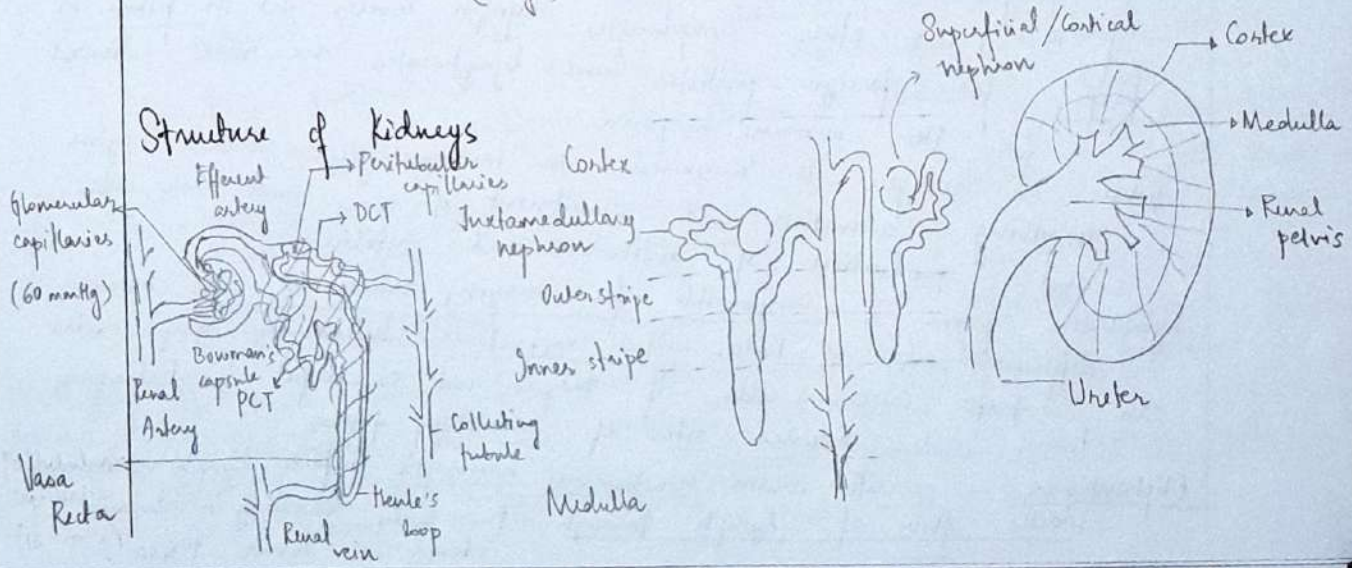 Structure of Kidneys
Glomerular
capillaries
(60 mmHg)
Efferent
artery
Peritubular
capillaries
DCT
Bowman's
capsule
PCT
Renal
Artery
Vasa
Recta
Renal
vein
Henle's
loop
Collecting
tubule
Cortex
Juxtamedullary
nephron
Outer stripe
Inner stripe
Medulla
Superficial/Cortical
nephron
Cortex
Medulla
Renal
pelvis
Ureter